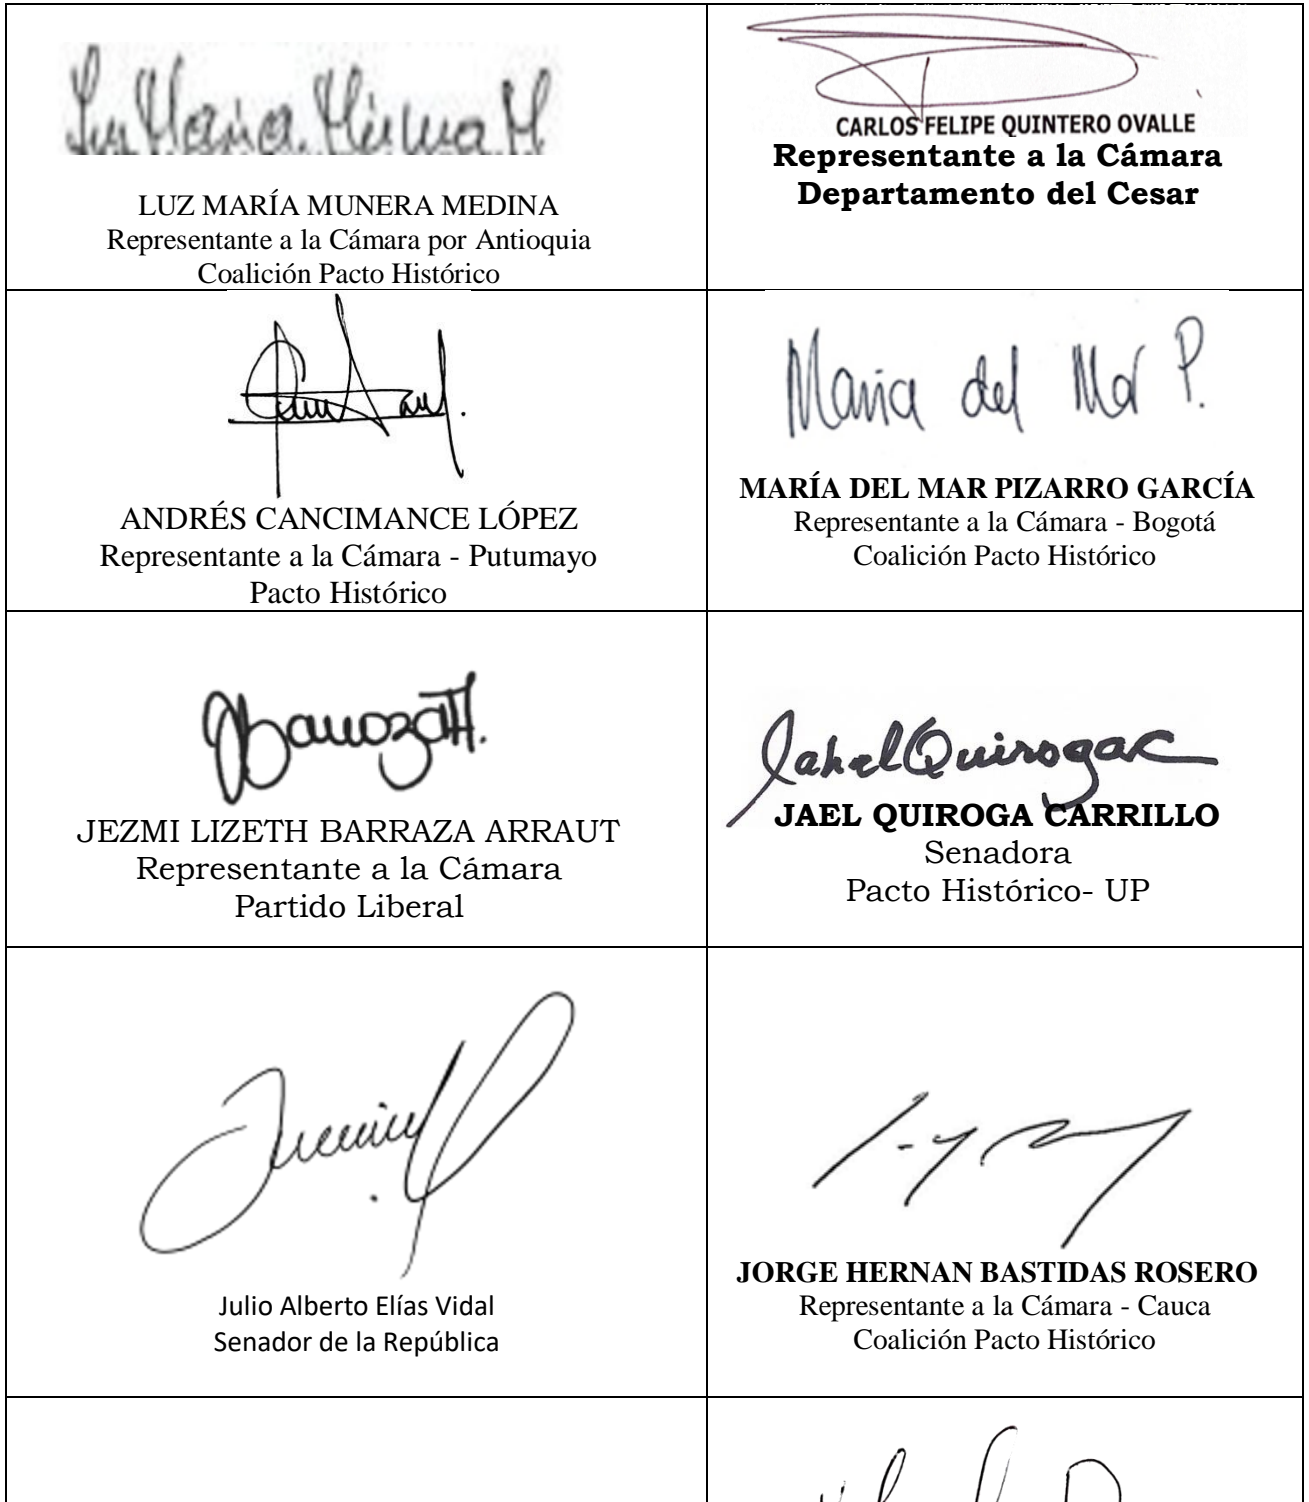 Luz María Múnera M
LUZ MARÍA MUNERA MEDINA
Representante a la Cámara por Antioquia
Coalición Pacto Histórico
CARLOS FELIPE QUINTERO OVALLE
Representante a la Cámara
Departamento del Cesar
ANDRÉS CANCIMANCE LÓPEZ
Representante a la Cámara - Putumayo
Pacto Histórico
Maria del Mar P.
MARÍA DEL MAR PIZARRO GARCÍA
Representante a la Cámara - Bogotá
Coalición Pacto Histórico
JEZMI LIZETH BARRAZA ARRAUT
Representante a la Cámara
Partido Liberal
Jahel Quiroga C
JAEL QUIROGA CARRILLO
Senadora
Pacto Histórico- UP
Julio Alberto Elías Vidal
Senador de la República
JORGE HERNAN BASTIDAS ROSERO
Representante a la Cámara - Cauca
Coalición Pacto Histórico